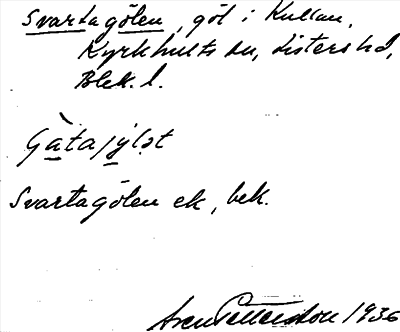 Svartagölen, göl i Kullan,
Kyrkhults sn, Listers hd,
Blek. l.
Gàtajylət
Svartagölen ek, bek.
Sven Pettersson 1936